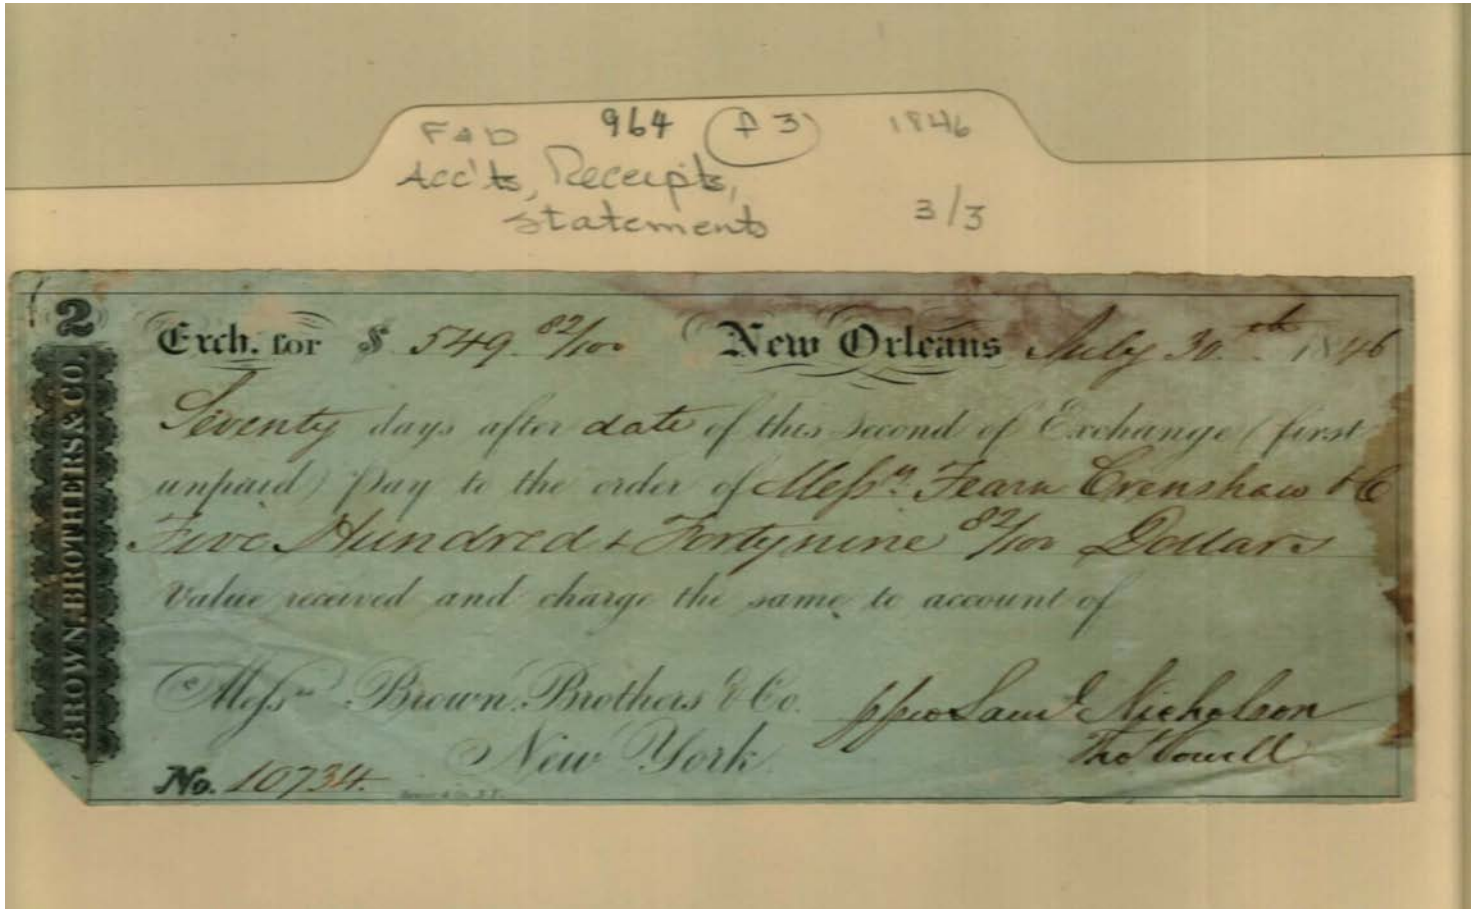 F & D 964 f 3 1846
Acc'ts, Receipts,
statements 3/3
2
BROWN. BROTHERS & CO.
Exch. for $ 549. 82/100 New Orleans July 30th 1846
Seventy days after date of this Second of Exchange (first
unpaid) Pay to the order of Messrs. Fearn Crenshaw & C
Five Hundred & Fortynine 82/100 Dollars
Value received and charge the same to account of
Messrs. Brown. Brothers & Co. ppro Saml Nicholson
New York. Tho Vowell
No. 10734.